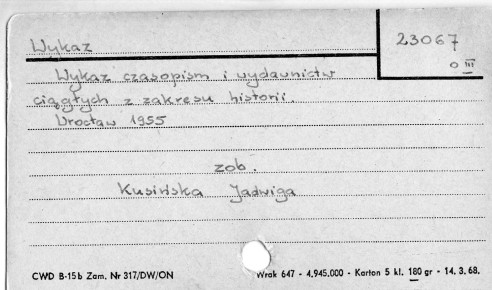 Wykaz
23067
O III
Wykaz czasopism i wydawnictw
ciągłych z zakresu historii.
Wrocław 1955
zob.
Kusińska Jadwiga
CWD B-15b Zam. Nr 317/DW/ON
Wrak 647 - 4.945.000 - Karton 5 kl. 180 gr - 14. 3. 68.